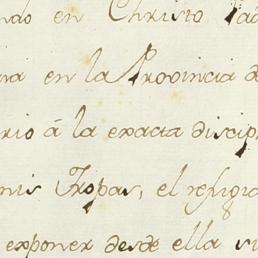 ndo en Christo Pad
ina en la Provincia de
rio á la exacta discip
mis Tropas, el refugia
exponer desde ella su